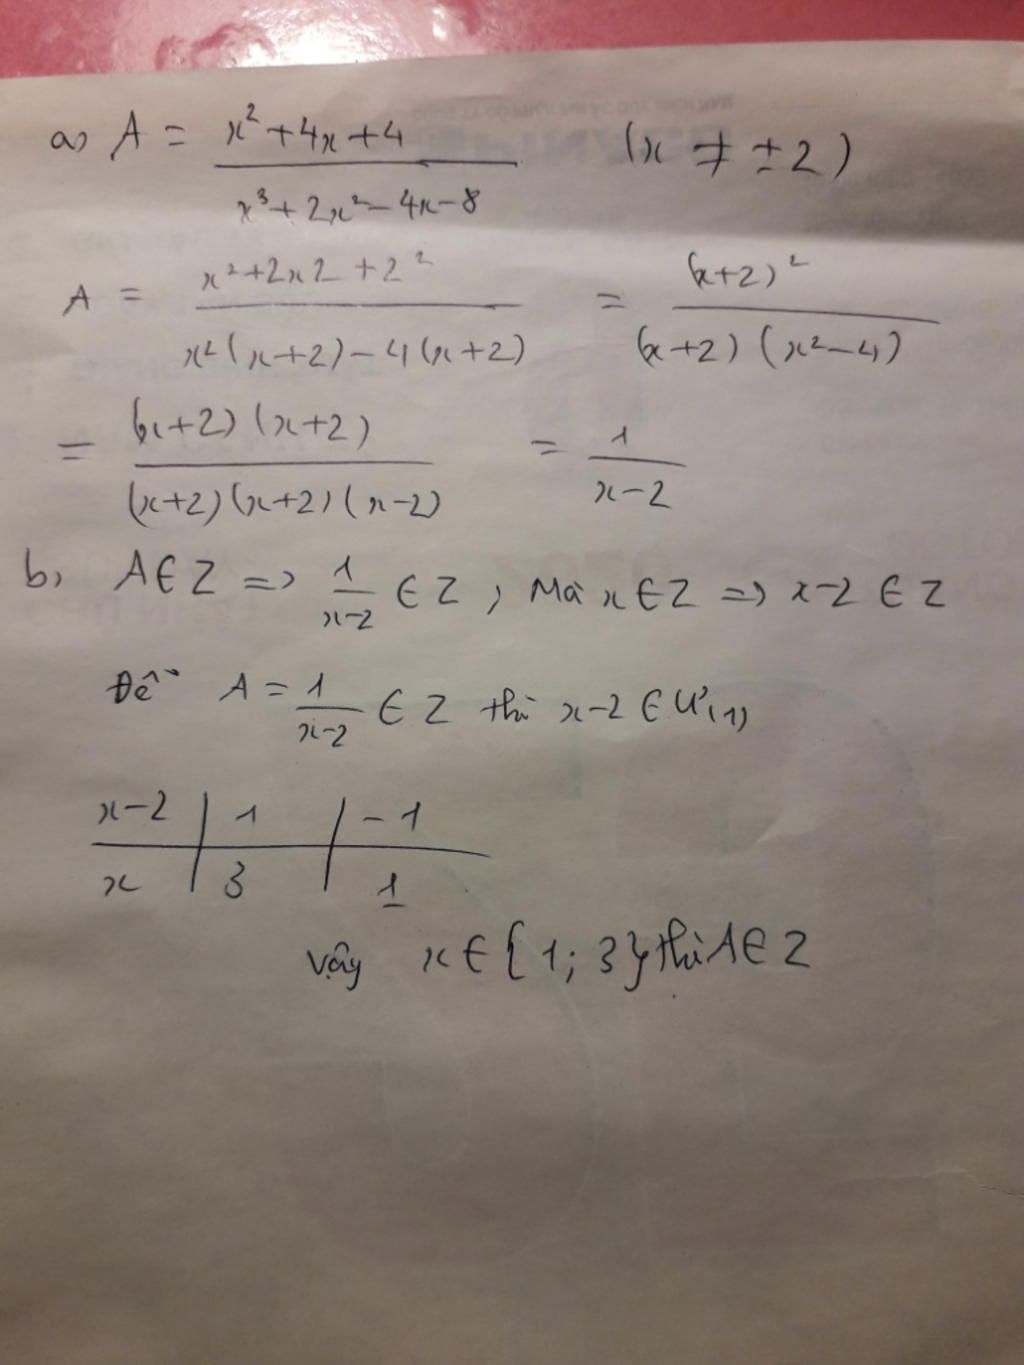 a) A = x²+4x+4 / x³+2x²-4x-8 (x ≠ ±2)
A = x²+2x2+2² / x²(x+2)-4(x+2) = (x+2)² / (x+2)(x²-4)
= (x+2)(x+2) / (x+2)(x+2)(x-2) = 1 / x-2
b, A∈Z => 1 / x-2 ∈ Z, Mà x∈Z => x-2 ∈ Z
Để A = 1 / x-2 ∈ Z thì x-2 ∈ Ư(1)
x-2 | 1 | -1
x | 3 | 1
Vậy x∈{1; 3} thì A∈Z